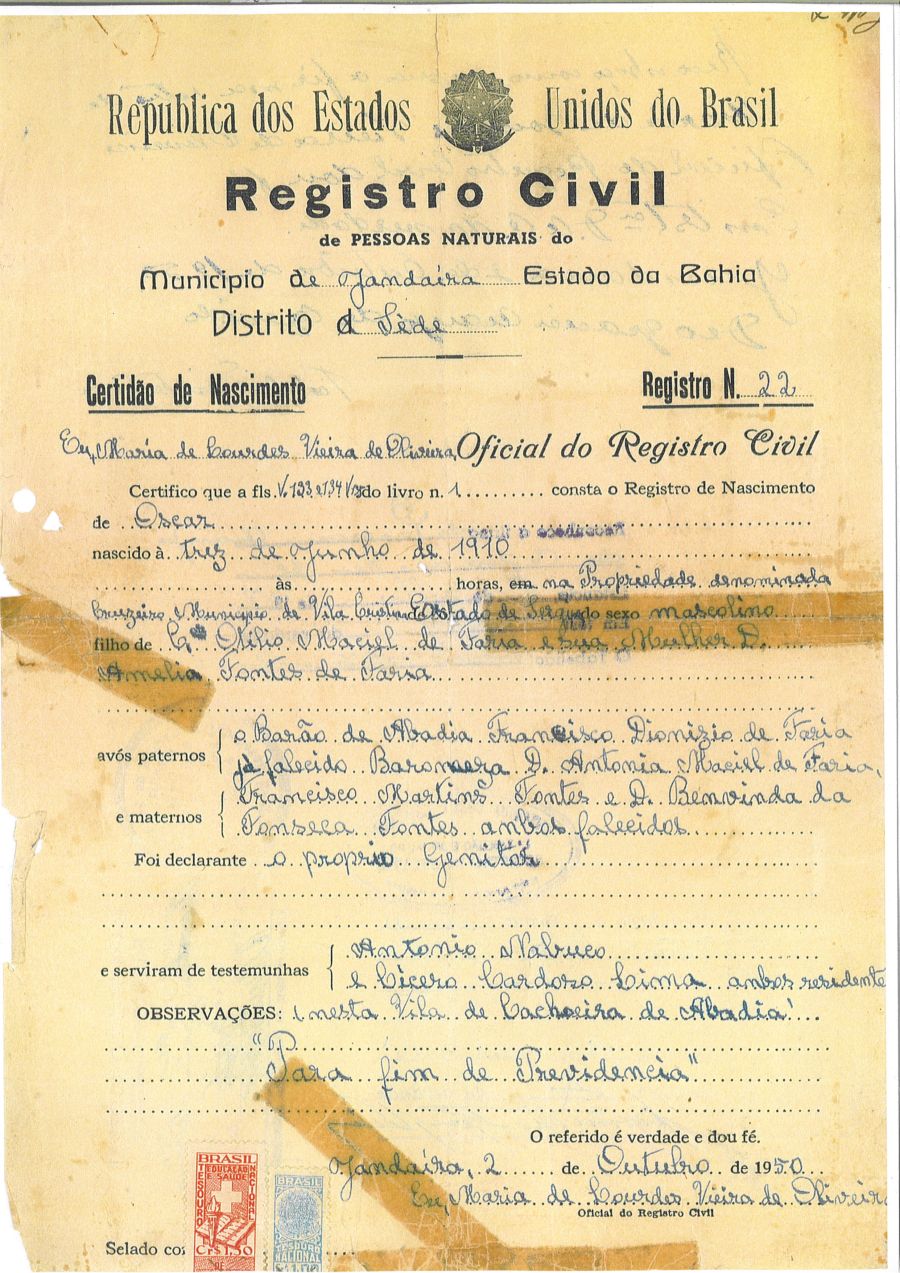 Republica dos Estados Unidos do Brasil
Registro Civil
de PESSOAS NATURAIS do
Municipio de Jandaíra Estado da Bahia
Distrito d Séde
Certidão de Nascimento Registro N. 22
Eu, Maria de Lourdes Vieira de Oliviera Oficial do Registro Civil
Certifico que a fls. V.133 e 134 V do livro n. 1 consta o Registro de Nascimento
de Oscar
nascido à trez de Junho de 1910
às horas, em na Propriedade denominada
Cruzeiro Municipio de Vila Cristina Estado de do sexo mascolino
filho de Otilio Maciel de Faria e sua Mulher D.
Amelia Fontes de Faria
avós paternos o Barão de Abadia Francisco Dionizio de Faria
já falecido Baroneza D. Antonia Maciel de Faria,
e maternos Francisco Martins Fontes e D. Benvinda da
Fonseca Fontes ambos falecidos
Foi declarante o proprio Genitor
e serviram de testemunhas Antonio Nabuco
e Cícero Cardozo Lima ambos residente
OBSERVAÇÕES: nesta Vila de Cachoeira de Abadia
"Para fim de Previdencia"
O referido é verdade e dou fé.
Jandaíra, 2 de Outubro de 1950
Eu, Maria de Lourdes Vieira de Oliveir
Oficial do Registro Civil
BRASIL
EDUCAÇÃO
E SAÚDE
TESOURO NACIONAL
Cr$ 1,50
BRASIL
TESOURO
NACIONAL
Selado co